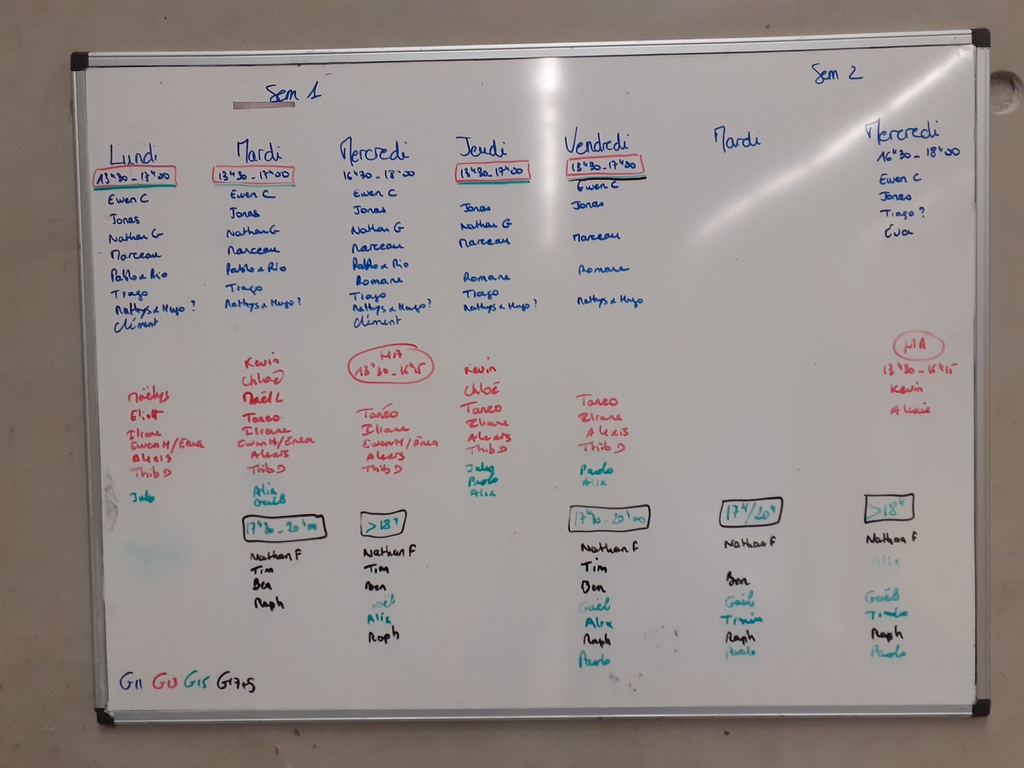 Sem 1
Sem 2
Lundi
13H30 - 17H00
Ewen C
Jonas
Nathan G
Marceau
Pablo & Rio
Tiago
Mathys & Hugo ?
Clément
Maëlys
Eliott
Iliane
Ewen H/Enea
Alexis
Thib D
Jules
Mardi
13H30 - 17H00
Ewen C
Jonas
Nathan G
Marceau
Pablo & Rio
Tiago
Mathys & Hugo ?
Kevin
Chloé
Maël L
Taneo
Iliane
Ewen H/Enea
Alexis
Thib D
Alix
Gaël
17H30 - 20H00
Nathan F
Tim
Ben
Raph
Mercredi
16H30 - 18H00
Ewen C
Jonas
Nathan G
Marceau
Pablo & Rio
Romane
Tiago
Mathys & Hugo ?
Clément
MIA
13H30 - 16H15
Tanéo
Iliane
Ewen H/Enea
Alexis
Thib D
>18H
Nathan F
Tim
Ben
Gaël
Alix
Raph
Jeudi
13H30 - 17H00
Jonas
Nathan G
Marceau
Romane
Tiago
Mathys & Hugo ?
Kevin
Chloé
Taneo
Iliane
Alexis
Thib D
Jules
Paolo
Alix
Vendredi
13H30 - 17H00
Ewen C
Jonas
Marceau
Romane
Mathys & Hugo
Taneo
Iliane
Alexis
Thib D
Paolo
Alix
17H30 - 20H00
Nathan F
Tim
Ben
Gaël
Alix
Raph
Paolo
Mardi
17H/20H
Nathan F
Ben
Gaël
Timéo
Raph
Paolo
Mercredi
16H30 - 18H00
Ewen C
Jonas
Tiago ?
Éva
MIA
13H30 - 16H15
Kevin
Alexis
>18H
Nathan F
Alix
Gaël
Timéo
Raph
Paolo
G11 G13 G15 G17+S